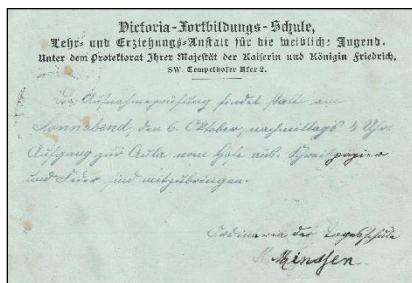 Victoria-Fortbildungs-Schule,
Lehr- und Erziehungs-Anstalt für die weibliche Jugend.
Unter dem Protektorat Ihrer Majestät der Kaiserin und Königin Friedrich.
SW. Tempelhofer Ufer 2.
Die Aufnahmeprüfung findet statt am
Sonnabend, den 6. Oktober, nachmittags 4 Uhr.
Aufgang zur Aula vom Hofe aus. Schreibpapier
und Feder sind mitzubringen.
Ordinaria der Tagesschule
M. Minssen.